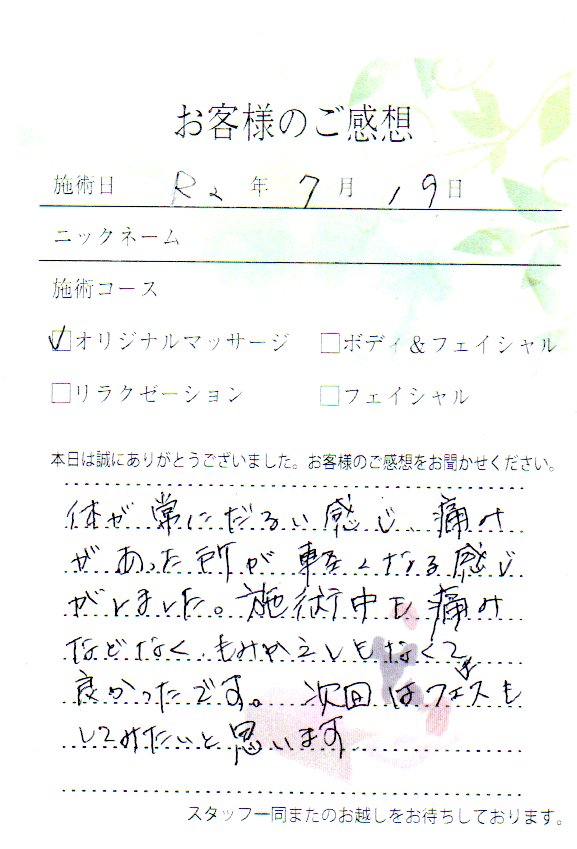 お客様のご感想
施術日 R2 年 7 月 19 日
ニックネーム
施術コース
☑オリジナルマッサージ □ボディ&フェイシャル
□リラクゼーション □フェイシャル
本日は誠にありがとうございました。お客様のご感想をお聞かせください。
体が常にだるい感じ、痛み
があった所が軽くなる感じ
がしました。施術中も痛み
などなく、もみかえしもなくて
良かったです。次回はフェスも
してみたいと思います
スタッフ一同またのお越しをお待ちしております。